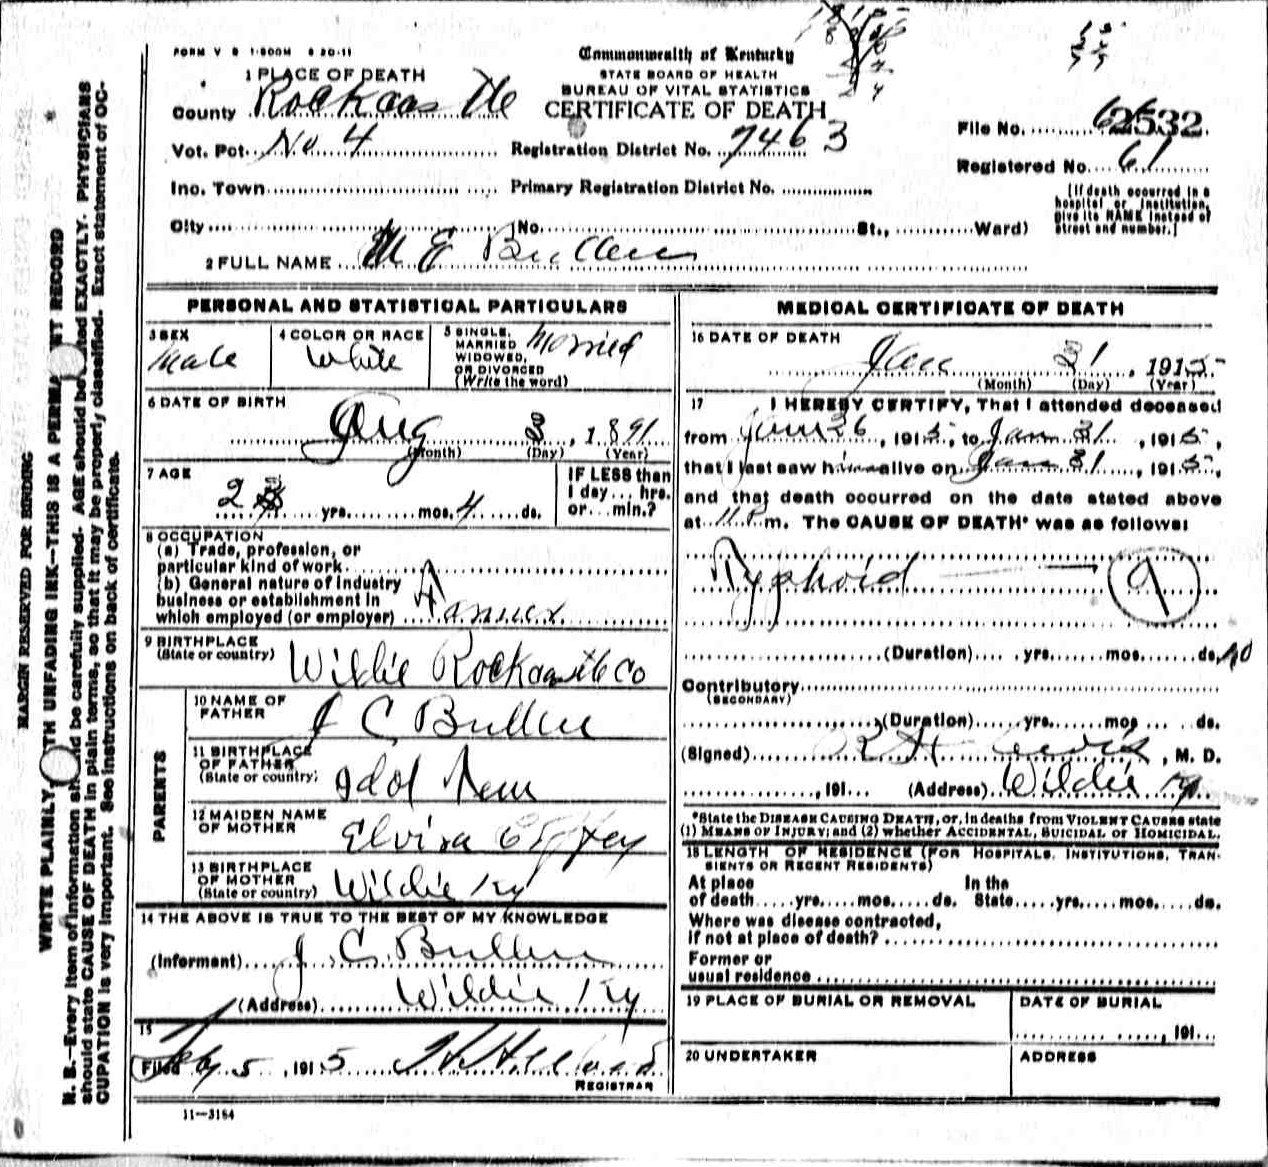 FORM V S 1-500M 8 20-11
Commonwealth of Kentucky
STATE BOARD OF HEALTH
BUREAU OF VITAL STATISTICS
CERTIFICATE OF DEATH
1 PLACE OF DEATH
County Rockcastle
Vot. Pct. No 4
Registration District No. 7463
File No. 2532
Registered No. 61
Inc. Town
Primary Registration District No.
City
(No. St., Ward)
[If death occurred in a
hospital or institution,
give its NAME instead of
street and number.]
2 FULL NAME M E Bullen
PERSONAL AND STATISTICAL PARTICULARS
3 SEX
Male
4 COLOR OR RACE
White
5 SINGLE,
MARRIED
WIDOWED,
OR DIVORCED
(Write the word)
Married
6 DATE OF BIRTH
Aug 3, 1891
(Month) (Day) (Year)
7 AGE
2 yrs. mos. 4 ds.
IF LESS than
1 day... hrs.
or...min.?
8 OCCUPATION
(a) Trade, profession, or
particular kind of work
(b) General nature of industry
business or establishment in
which employed (or employer) Farmer
9 BIRTHPLACE
(State or country) Wildie Rockcastle Co
PARENTS
10 NAME OF
FATHER
J C Bullen
11 BIRTHPLACE
OF FATHER
(State or country)
12 MAIDEN NAME
OF MOTHER
Elvira
13 BIRTHPLACE
OF MOTHER
(State or country) Wildie Ky
14 THE ABOVE IS TRUE TO THE BEST OF MY KNOWLEDGE
(Informant) J. C. Bullen
(Address) Wildie Ky
15
Filed Feb 5, 1915
REGISTRAR
11-3184
MEDICAL CERTIFICATE OF DEATH
16 DATE OF DEATH
Jan 31, 1915
(Month) (Day) (Year)
17 I HEREBY CERTIFY, That I attended deceased
from Jan 26, 1915, to Jan 31, 1915,
that I last saw him alive on Jan 31, 1915,
and that death occurred on the date stated above
at 11 P. m. The CAUSE OF DEATH* was as follows:
Typhoid 9
(Duration) yrs. mos. ds. 10
Contributory
(SECONDARY)
(Duration) yrs. mos ds.
(Signed) R H Lewis, M. D.
, 191 (Address) Wildie Ky
*State the DISEASE CAUSING DEATH, or, in deaths from VIOLENT CAUSES state
(1) MEANS OF INJURY; and (2) whether ACCIDENTAL, SUICIDAL or HOMICIDAL.
18 LENGTH OF RESIDENCE (FOR HOSPITALS, INSTITUTIONS, TRAN-
SIENTS OR RECENT RESIDENTS)
At place In the
of death yrs. mos. ds. State yrs. mos. ds.
Where was disease contracted,
if not at place of death?
Former or
usual residence
19 PLACE OF BURIAL OR REMOVAL
DATE OF BURIAL
, 191
20 UNDERTAKER
ADDRESS
MARGIN RESERVED FOR BINDING
WRITE PLAINLY, WITH UNFADING INK—THIS IS A PERMANENT RECORD
N. B.—Every item of information should be carefully supplied. AGE should be stated EXACTLY. PHYSICIANS
should state CAUSE OF DEATH in plain terms, so that it may be properly classified. Exact statement of OC-
CUPATION is very important. See instructions on back of certificate.